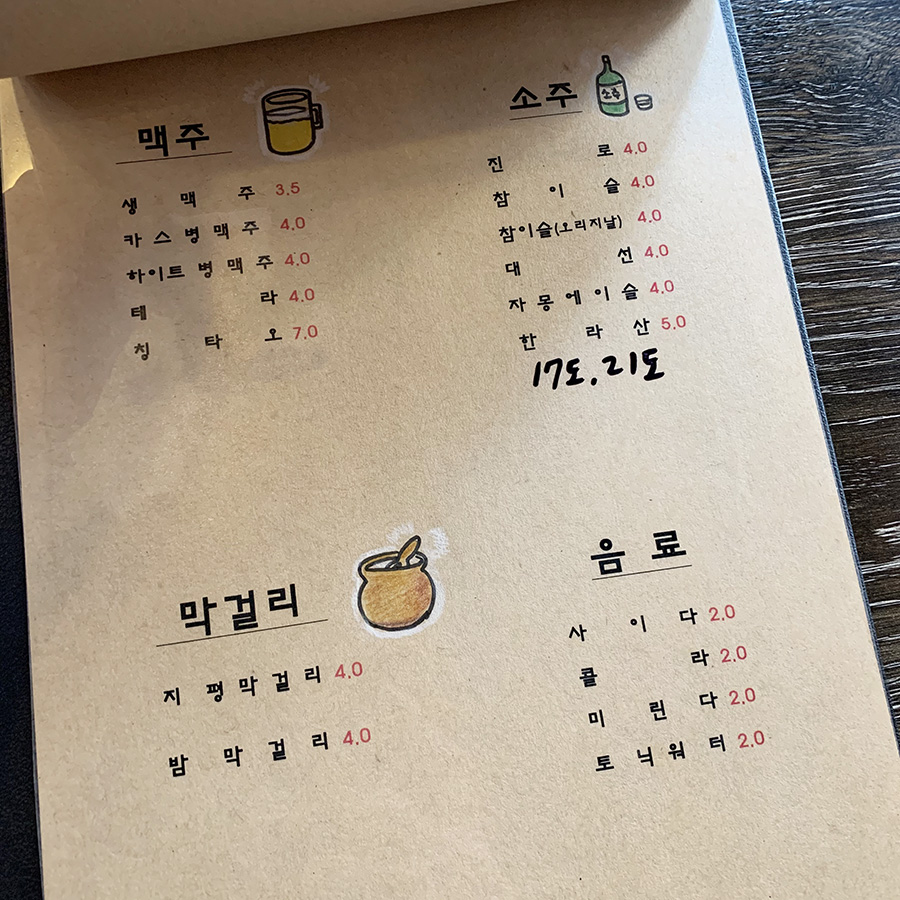 맥주
생 맥 주 3.5
카 스 병 맥 주 4.0
하이트 병 맥 주 4.0
테 라 4.0
칭 타 오 7.0
소주
소주
진 로 4.0
참 이 슬 4.0
참이슬(오리지날) 4.0
대 선 4.0
자 몽 에 이 슬 4.0
한 라 산 5.0
17도. 21도
막걸리
지 평 막 걸 리 4.0
밤 막 걸 리 4.0
음 료
사 이 다 2.0
콜 라 2.0
미 린 다 2.0
토 닉 워 터 2.0